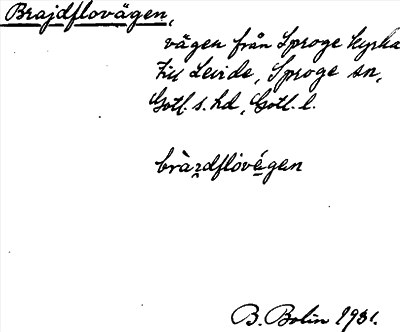 Brajdflovägen,
vägen från Sproge kyrka
till Levide, Sproge sn,
Gotl. s. hd, Gotl. l.
bràɪdflòvę́gen
B. Bolin 1931.